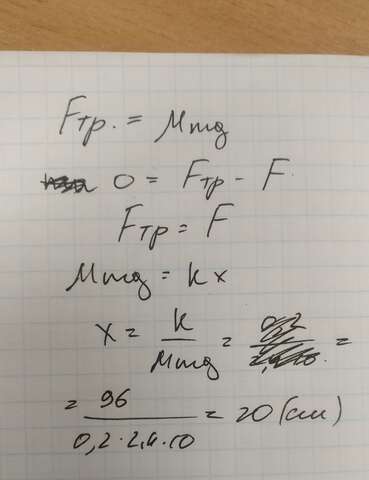 Fтр. = Mmg
0 = Fтр - F
Fтр = F
Mmg = kx
x = k/Mmg = =
= 96/0,2·2,4·10 = 20 (см)